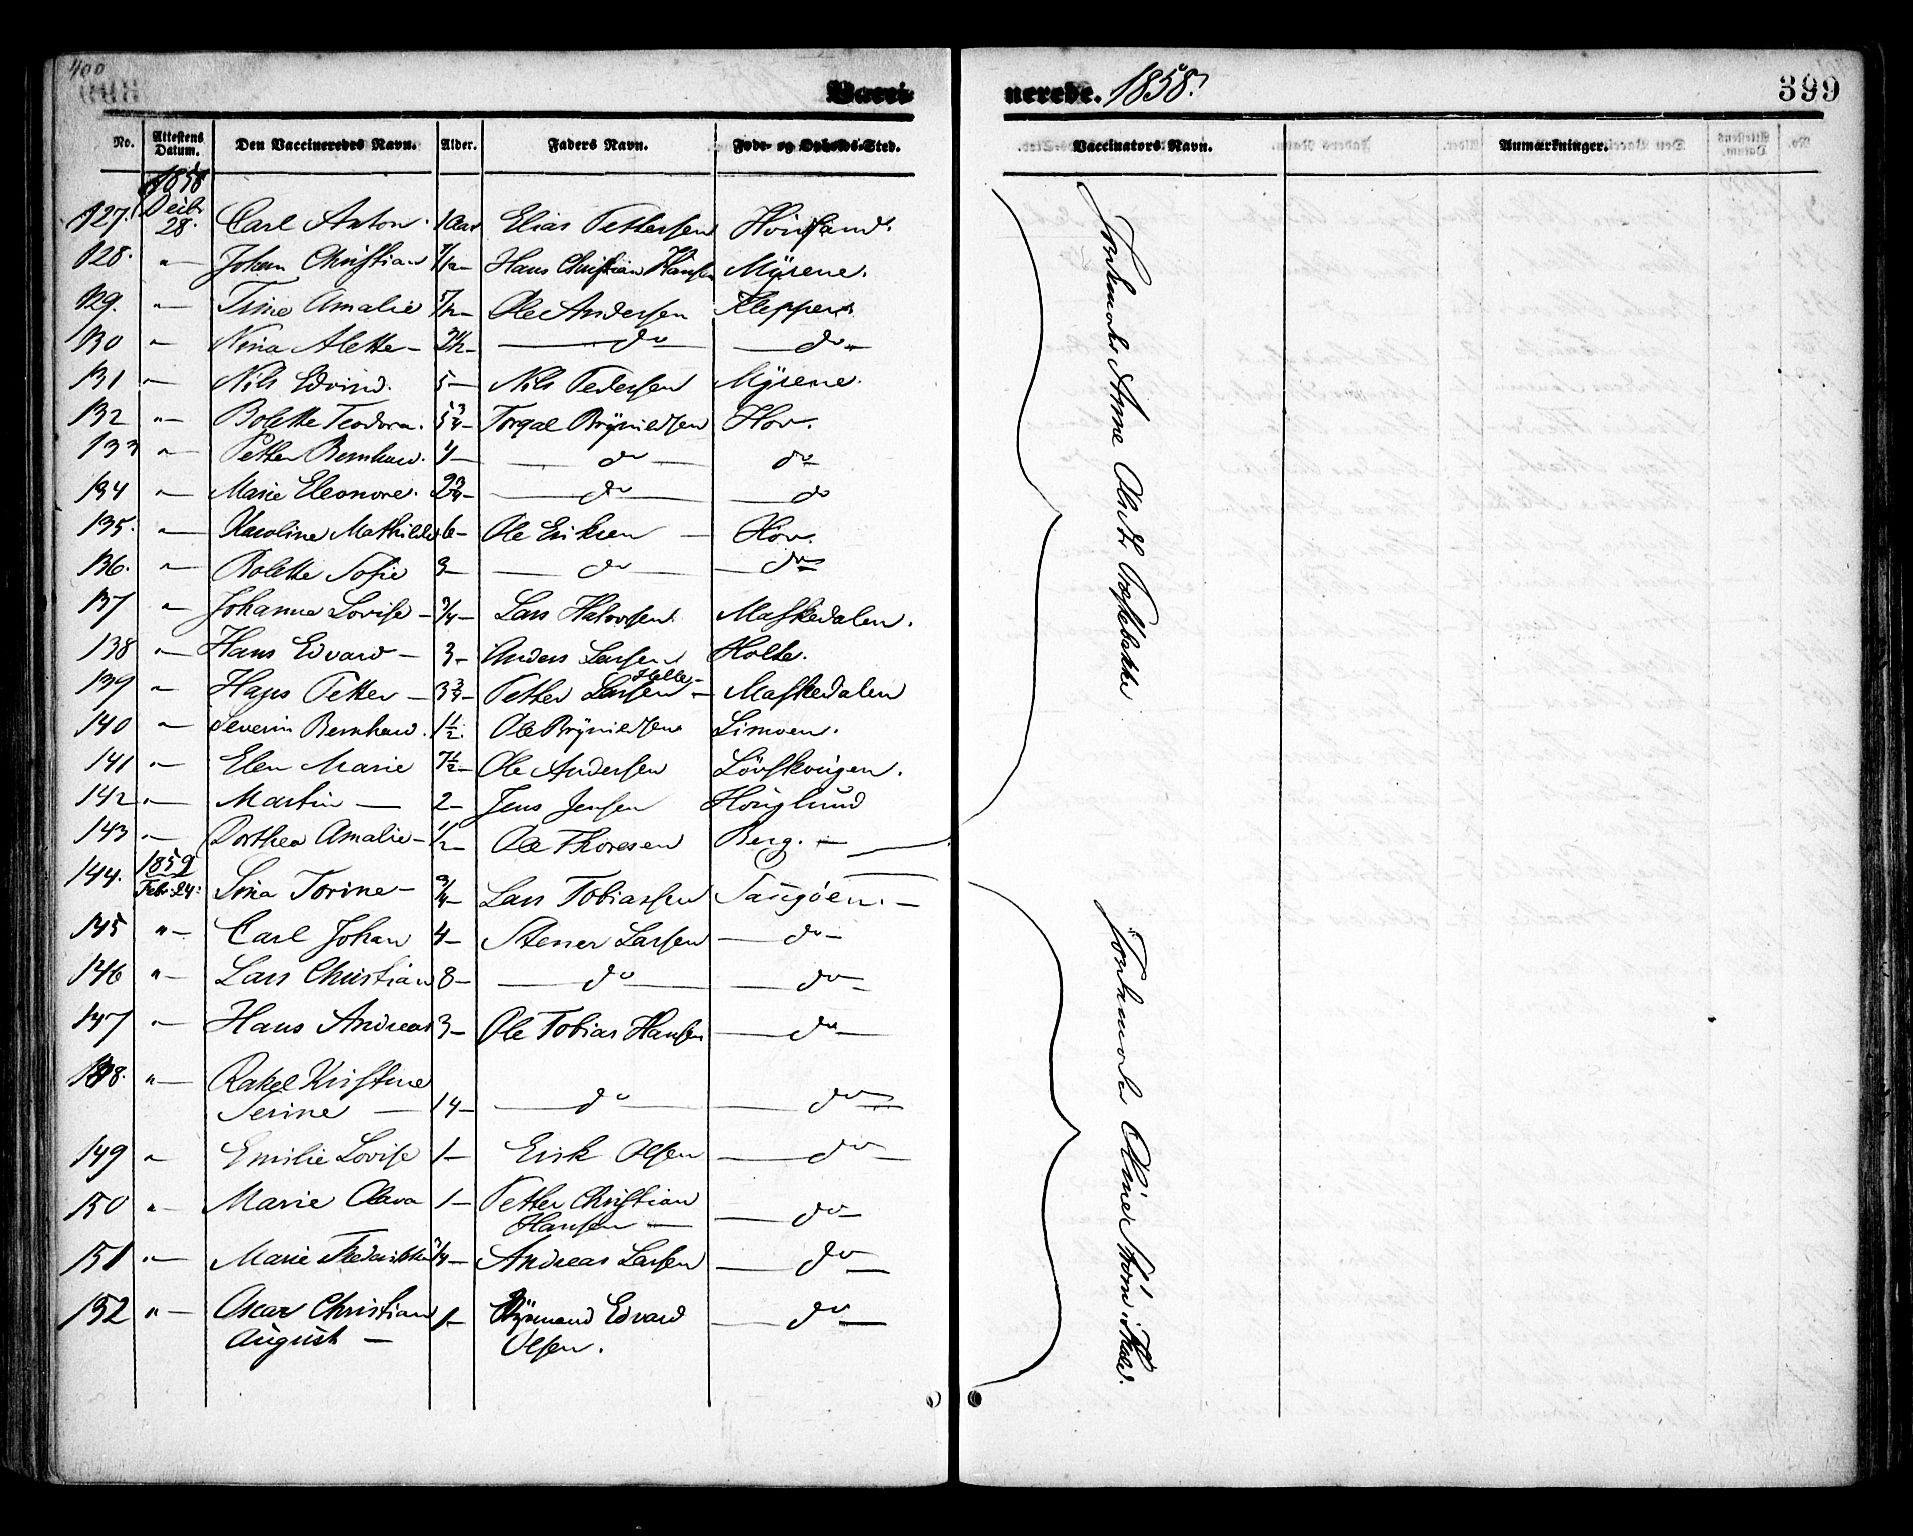 400
Vacci- nerede. 1858. 399
No. Attestens Datum. Den Vaccineredes Navn. Alder. Faders Navn. Føde- og Opholds-Sted. Vaccinators Navn. Anmærkninger.
1858
127. Decbr 28. Carl Anton. 1 Aar Elias Pettersen
128. " Johan Christian Hans Christian Hansen Myrene.
129. " Trine Amalie Ole Andersen Kleppen
130 " Nina Alette – do do
131 " Nils Edvind. 5 – Nils Pedersen Myrene.
132 " Bolette Teodora. 5 3/4 – Brynildsen Hov.
133 " Petter Bernhard. 4 – do do
134 " Marie Eleonore. 2 3/4 – do do
135. " Karoline Mathilde 6 – Ole Eriksen – Hov.
136. " Bolette Sofie 3 – do do
137 " Johanne Lovise – 3/4 – Lars Halvorsen. Maskedalen.
138 " Hans Edvard – 3 – Anders Larsen Holte.
139 " Hans Petter – 3 3/4 – Petter Larsen Helle – Maskedalen
140 " Severin Bernhard. 1 1/2. Ole Brynildsen Limoen.
141 " Elen Marie 7 1/2 – Ole Andersen Løvskougen.
142 " Martin – 2 – Jens Jensen Houglund
143 " Dorthea Amalie – 1/2 – Ole Thoresen Berg. –
144. 1859 Febr: 24: Sina Torine – 3/4 – Lars Tobiassen Saugøen. –
145 " – Carl Johan 4 – Stener Larsen – do –
146 " – Lars Christian 8 – do do –
147 " Hans Andreas 3 – Ole Tobias Hansen – do –
148. " – Rakel Kristine
Serine – 14 – do do
149 " Emilie Lovise 1 – Eirik Olsen – do –
150 " Marie Olava 1 – Petter Christian
Hansen – do –
151 " Marie 1/4 – Andreas Larsen – do –
152 " – Oscar Christian 1 – Edvard – do –
August – Olsen.
Jordemoder Anne
Jordemoder